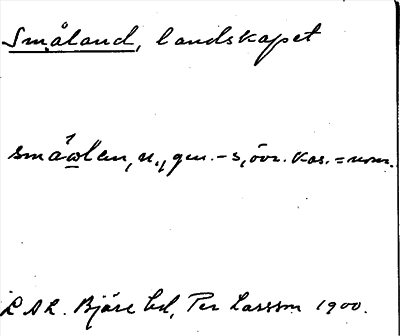 Småland, landskapet
småωlan, n., gen. -s, övr. kas. = nom.
L A L. Bjäre hd, Per Larsson 1900.